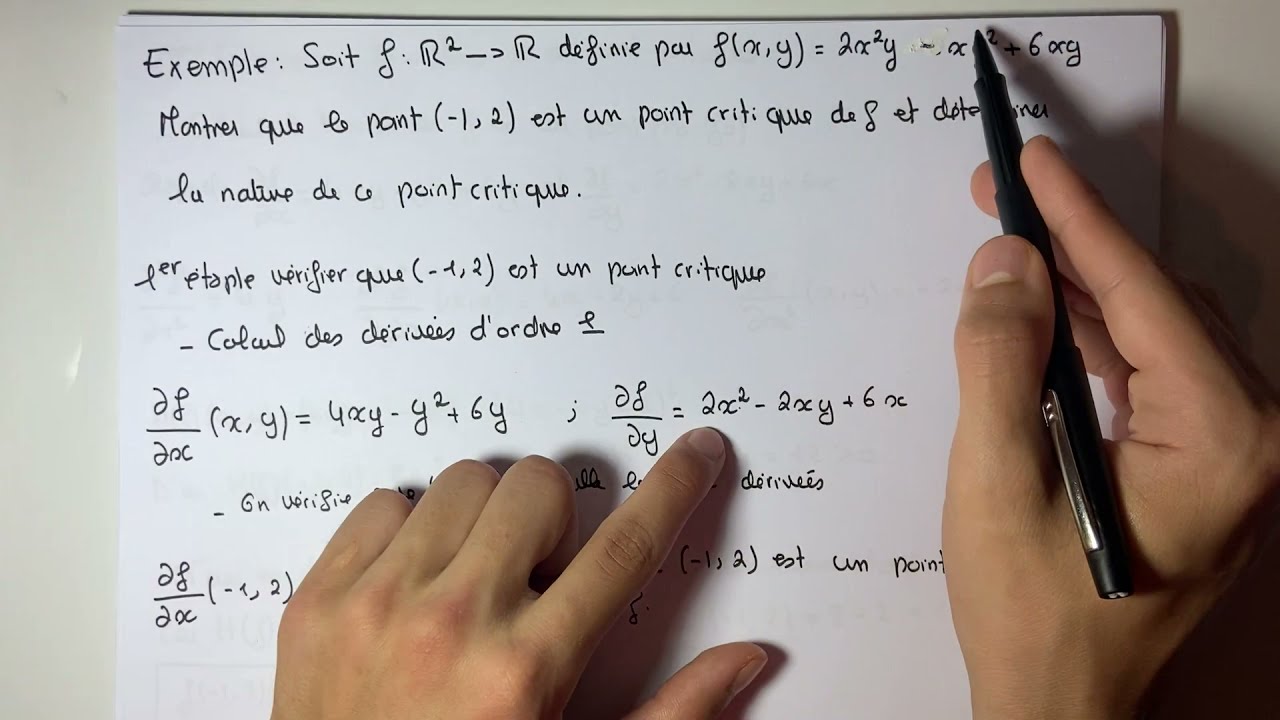 Exemple : Soit f : ℝ² → ℝ définie par f(x, y) = 2x²y - x ² + 6xy
Montrer que le point (-1, 2) est un point critique de f et
la nature de ce point critique.
1er étaple vérifier que (-1, 2) est un point critique
- Calcul des dérivées d'ordre 1
∂f/∂x (x, y) = 4xy - y² + 6y ; ∂f/∂y = 2x² - 2xy + 6x
- On vérifie dérivées
∂f/∂x (-1, 2) (-1, 2) est un point
f.